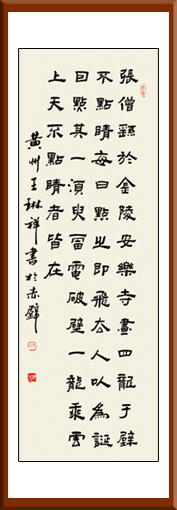 張僧繇於金陵安樂寺畫四龍于壁
不點睛每曰點之即飛去人以為誕
因點其一須臾雷電破壁一龍乘雲
上天不點睛者皆在
黃州王琳祥書於赤壁